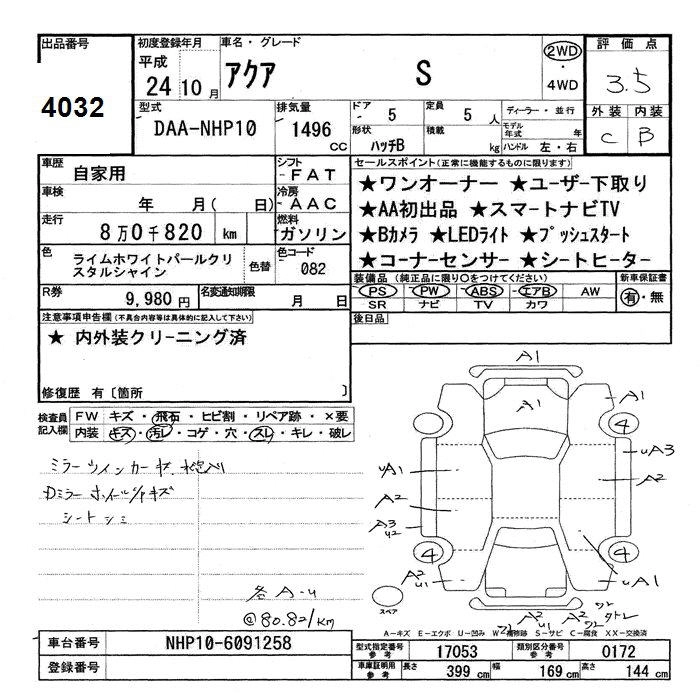 出品番号 初度登録年月 車名・グレード 評価点
4032 平成 24 10月 アクア S 2WD ・ 4WD 3.5
外装 内装
C B
型式 DAA-NHP10 排気量 1496 CC
ドア 5 定員 5 人 ディーラー・並行
形状 ハッチB 積載 kg モデル年式 年
ハンドル 左・右
車歴 自家用 シフト -FAT
車検 年 月( 日) 冷房 -AAC
走行 8万0千820 km 燃料 ガソリン
色 ライムホワイトパールクリスタルシャイン 色替 色コード 082
R券 9,980円 名変通知期限 月 日
セールスポイント(正常に機能するものに限ります)
★ワンオーナー ★ユーザー下取り
★AA初出品 ★スマートナビTV
★Bカメラ ★LEDライト ★プッシュスタート
★コーナーセンサー ★シートヒーター
装備品 (純正品に限り○をつけてください) 新車保証書
PS PW ABS エアB AW 有・無
SR ナビ TV カワ
後日品
注意事項申告欄(不具合内容等は具体的に記入して下さい)
★ 内外装クリーニング済
修復歴 有〔箇所 〕
検査員記入欄 FW キズ・飛石・ヒビ割・リペア跡・×要
内装 キズ・汚レ・コゲ・穴・スレ・キレ・破レ
Dミラー ホイールキズ
シートシミ
各 A-U
@80.821km
A1
A1
A1
4
4
UA1
UA3
A2
A2
A3
U2
4
4
A2
U1
UA1
スペア
A2
U1
A2
A-キズ E-エクボ U-凹み W-補修跡 S-サビ C-腐食 XX-交換済
車台番号 NHP10-6091258
登録番号
型式指定番号 参考 17053 類別区分番号 参考 0172
車庫証明用 参考 長さ 399 cm 幅 169 cm 高さ 144 cm